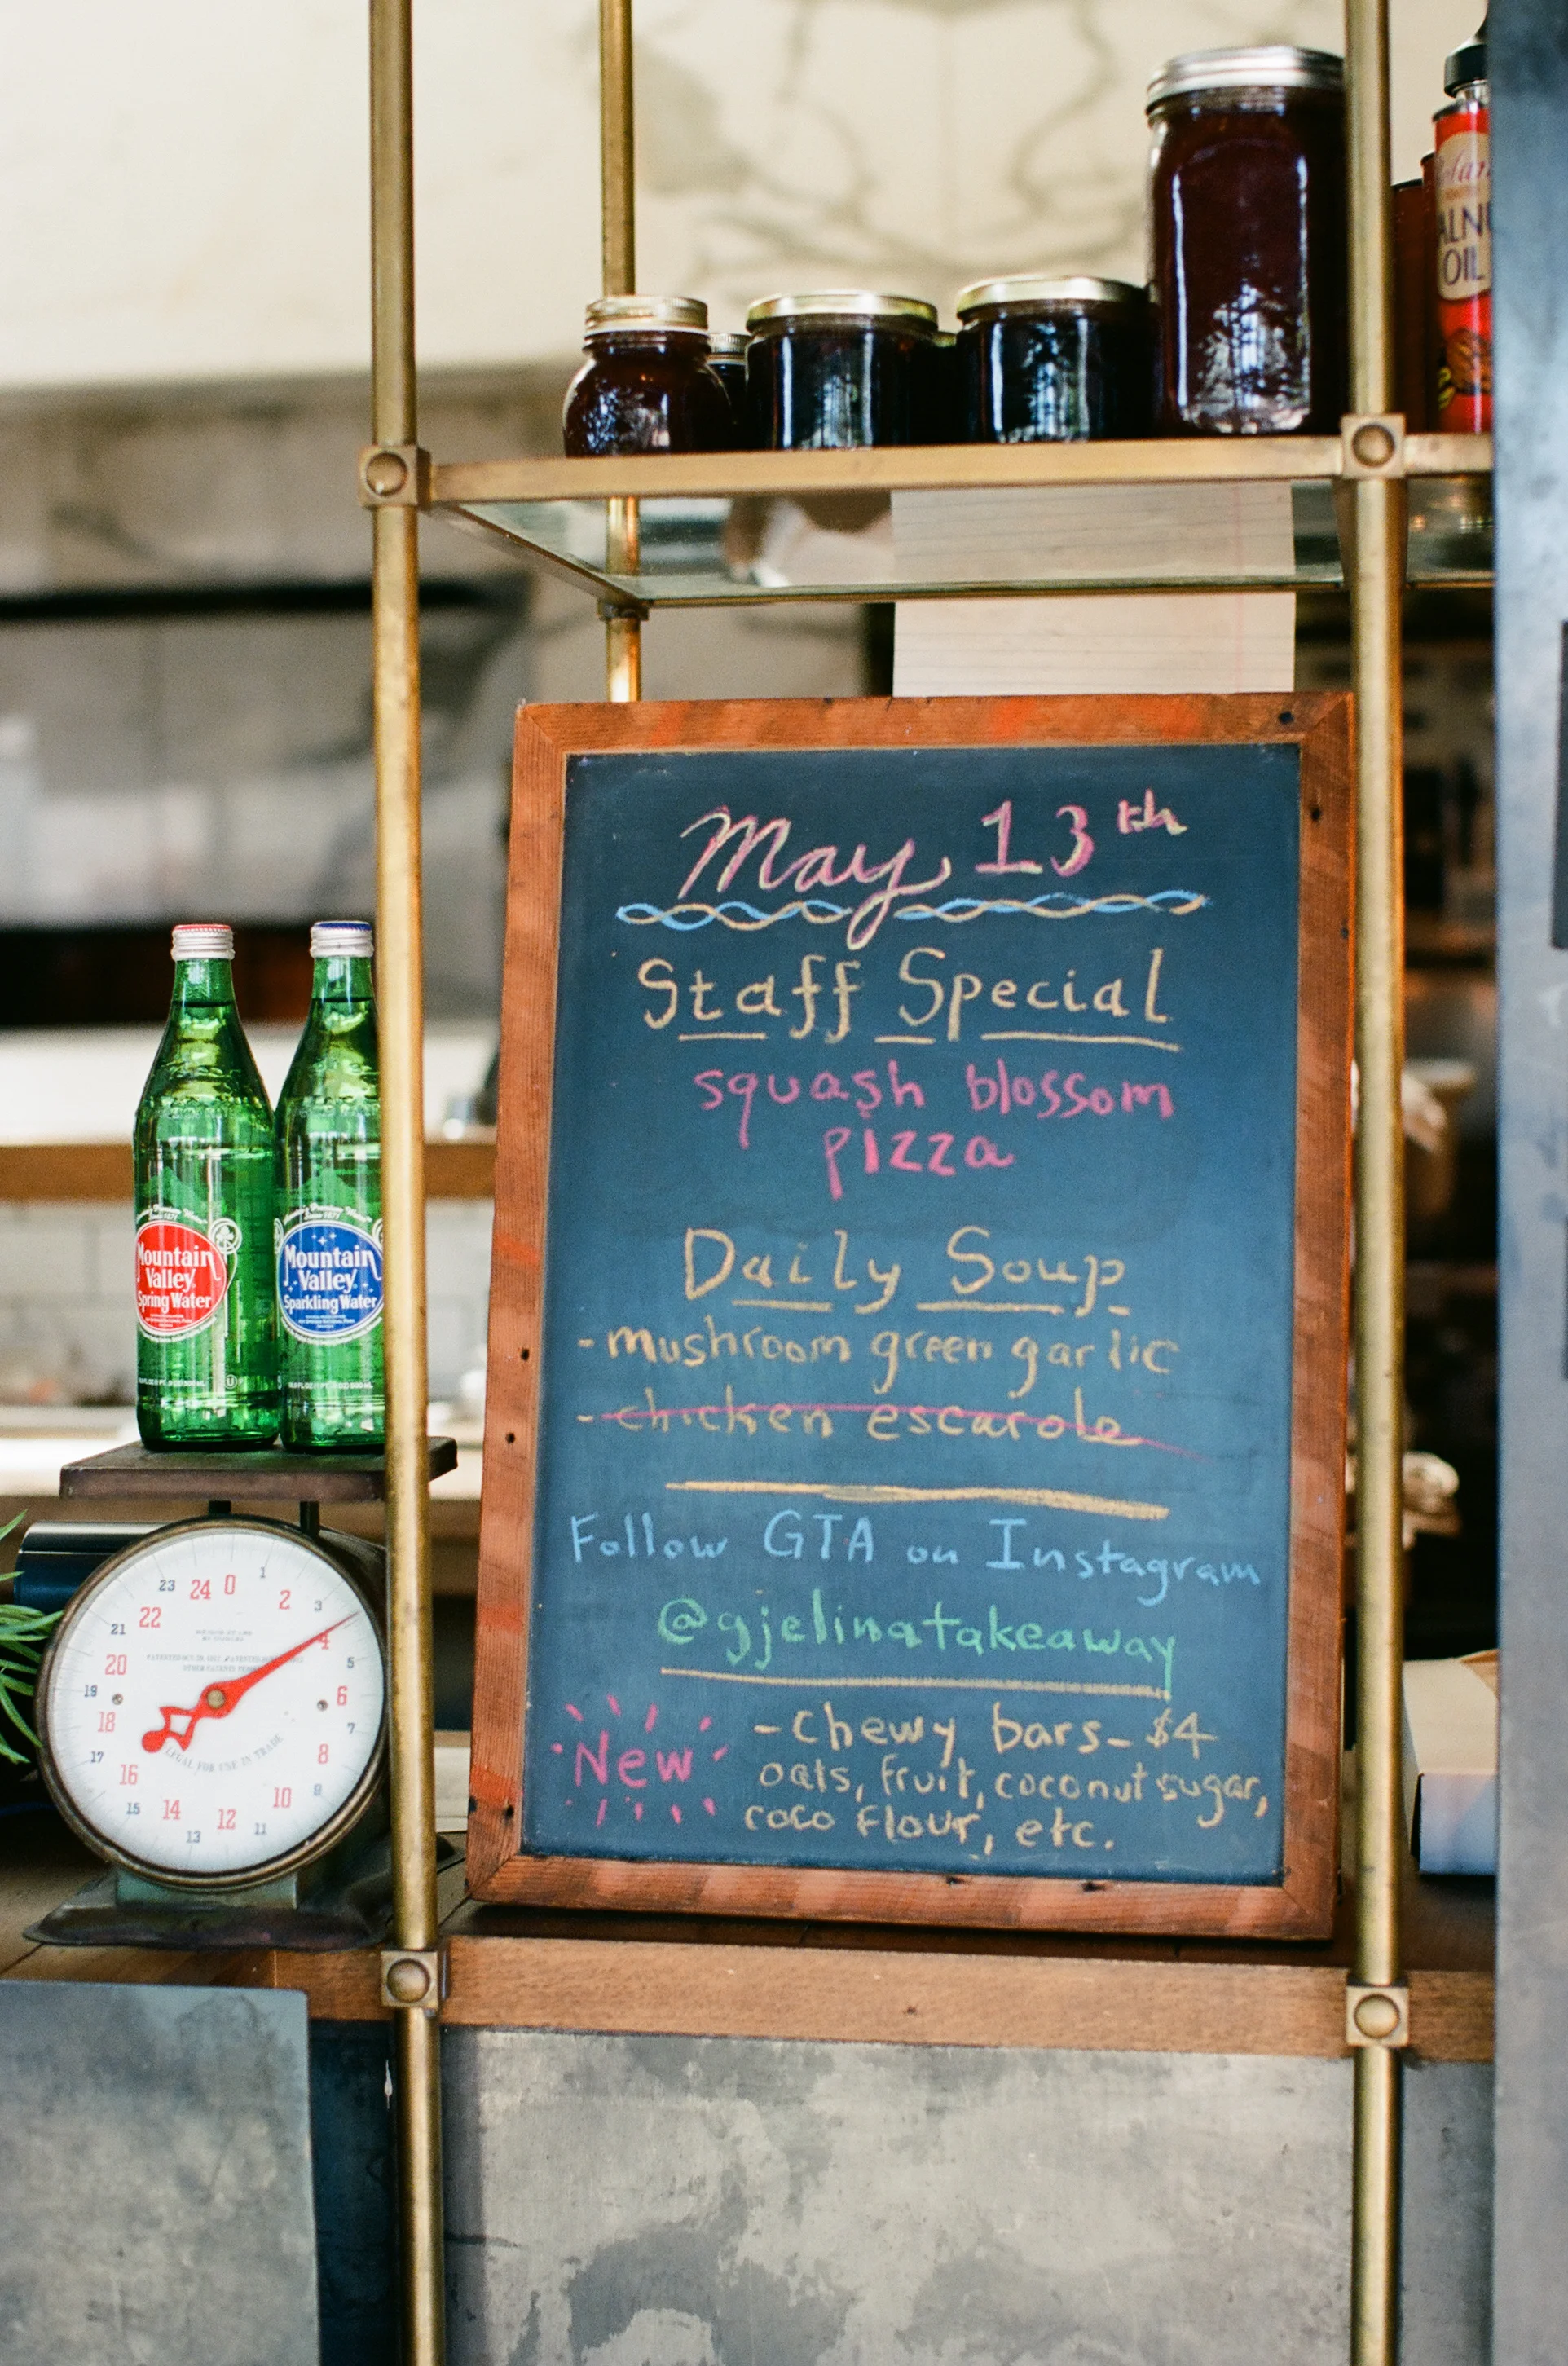 WALNUT
OIL
May 13th
Staff Special
squash blossom
pizza
Daily Soup
- mushroom green garlic
- chicken escarole
Follow GTA on Instagram
@gjelinatakeaway
New
- chewy bars - $4
oats, fruit, coconut sugar,
coco flour, etc.
Since 1871
Mountain
Valley
Spring Water
Since 1871
Mountain
Valley
Sparkling Water
0 1 2 3 4 5 6 7 8 9 10 11 12 13 14 15 16 17 18 19 20 21 22 23 24
LEGAL FOR USE IN TRADE